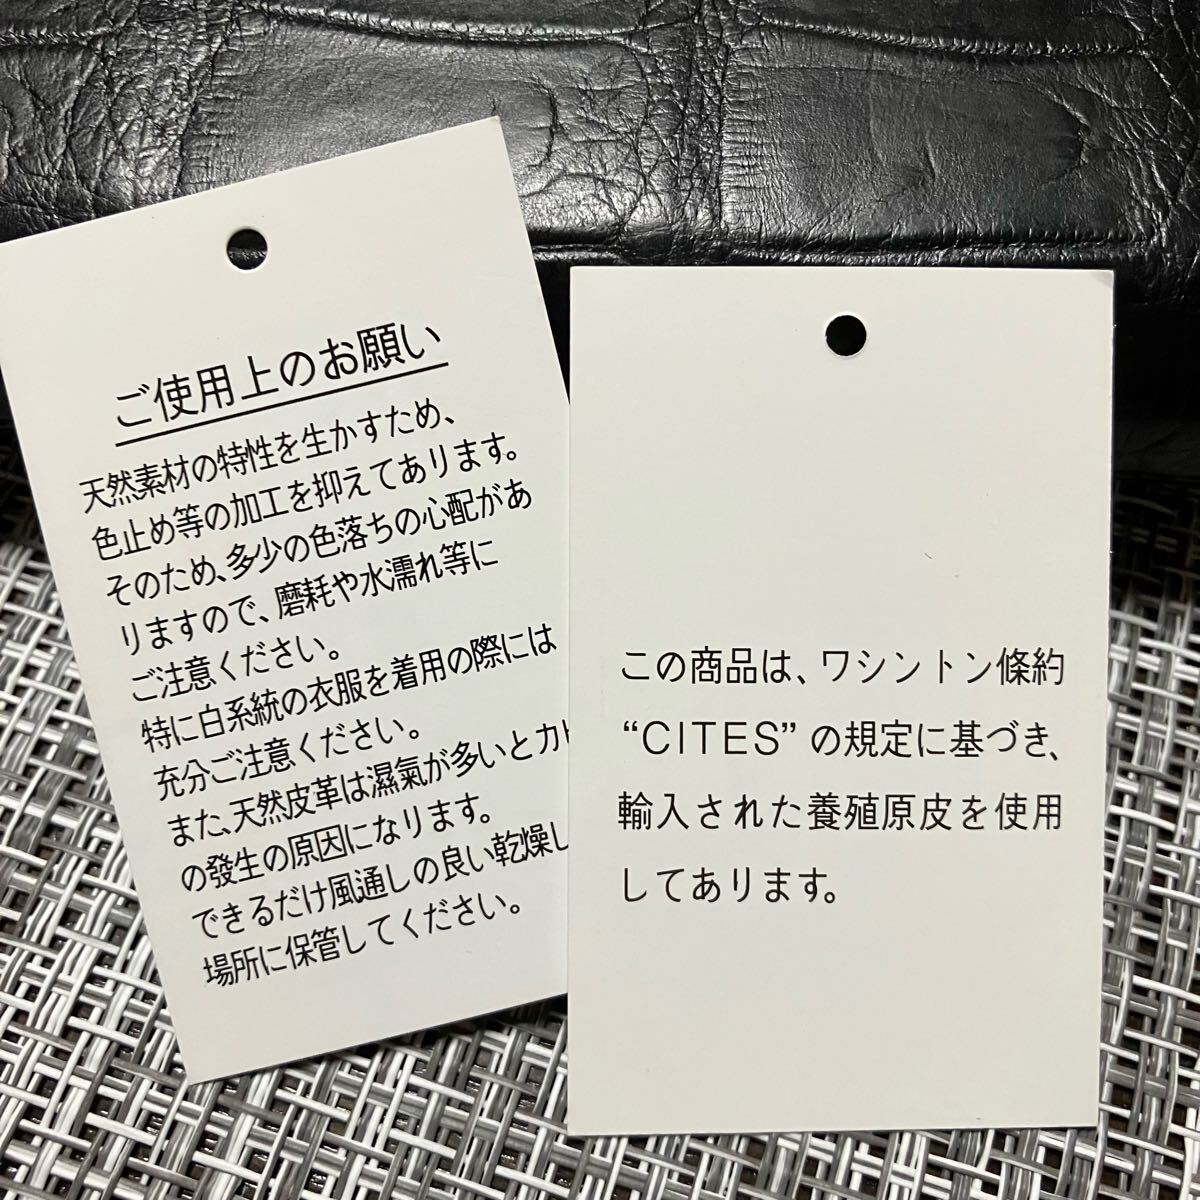 ご使用上のお願い
天然素材の特性を生かすため、
色止め等の加工を抑えてあります。
そのため、多少の色落ちの心配があ
りますので、磨耗や水濡れ等に
ご注意ください。
特に白系統の衣服を着用の際には
充分ご注意ください。
また、天然皮革は濕氣が多いとカビ
の發生の原因になります。
できるだけ風通しの良い乾燥し
場所に保管してください。
この商品は、ワシントン條約
“CITES”の規定に基づき、
輸入された養殖原皮を使用
してあります。